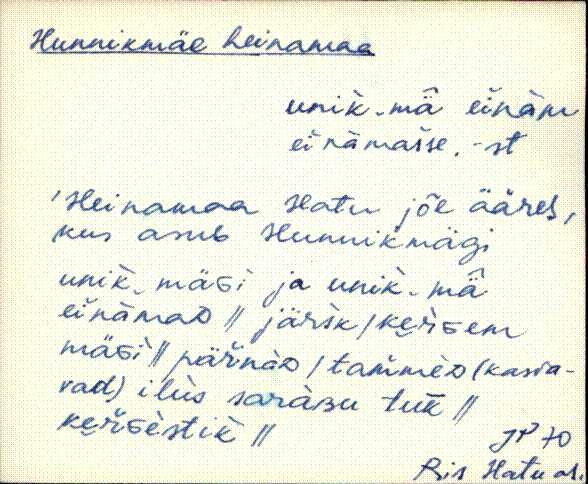 Hunnikmäe heinamaa
unik̀-mä̂ eìnàm
eìnàmasse, -st
'Heinamaa Hatu jõe ääres,
kus asub Hunnikmägi
unik̀-mäɢi ja unik̀-mä̂
eìnàmaᴅ // järsk / kerɢem
mäɢi // pärnàᴅ / tammèᴅ (kasva-
vad) ilùs saràʙu tukk //
kerɢèstik̀ //
JP 70
Ris Hatu as.